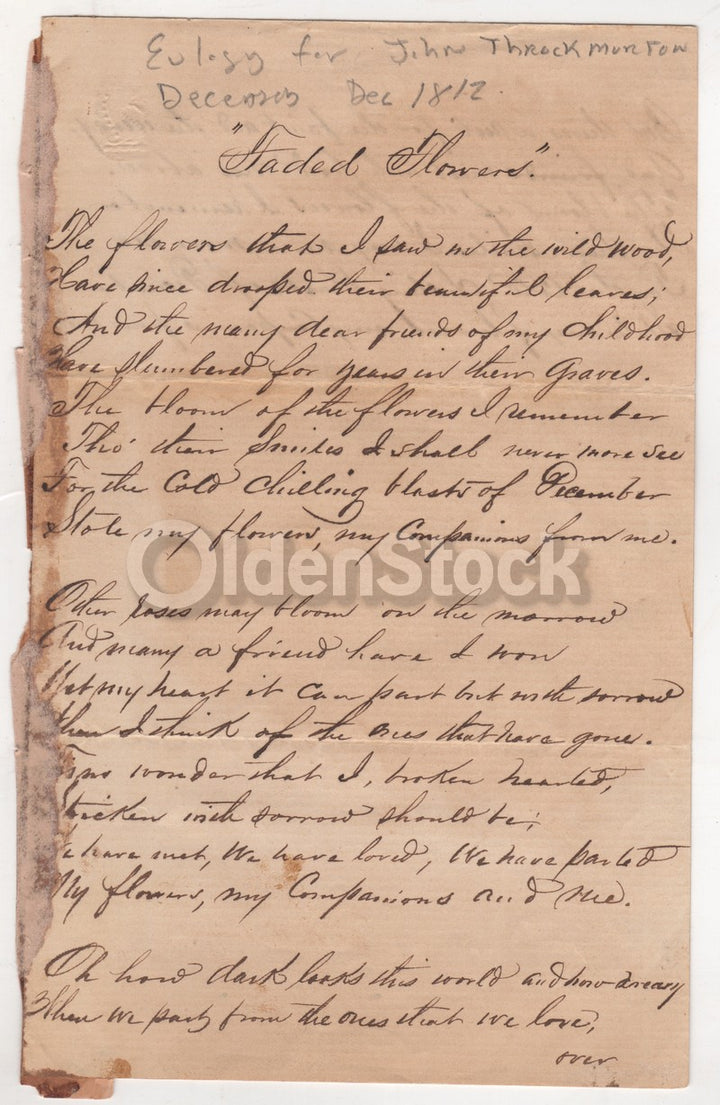 Eulogy for John Throckmorton
December Dec 1812.
"Faded Flowers".
The flowers that I saw in the wild wood,
Have since drooped their beautiful leaves;
And the many dear friends of my Childhood
Have slumbered for years in their graves.
The bloom of the flowers I remember
Tho' their smiles I shall never more see
For the Cold Chilling blasts of December
Stole my flowers, my Companions from me.
Other roses may bloom on the morrow
And many a friend have I won
Yet my heart it can part but with sorrow
When I think of the ones that have gone.
Tis no wonder that I, broken hearted,
Stricken with sorrow should be;
We have met, We have loved, We have parted
My flowers, my Companions and me.
Oh how dark looks this world and how dreary
When we part from the ones that we love,
over
OldenStock